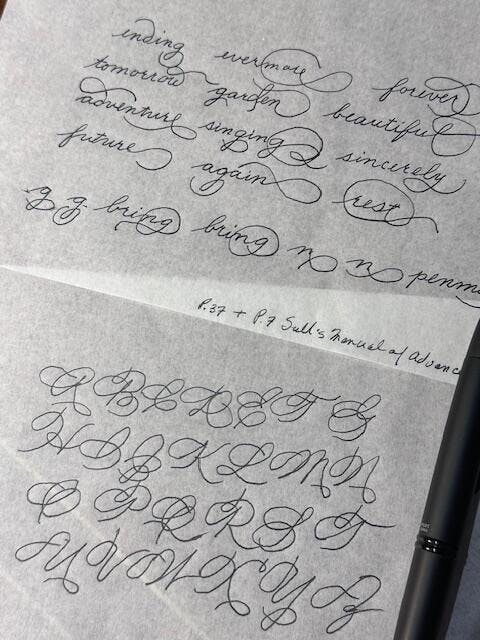 ending evermore forever
tomorrow garden beautiful
adventure singing sincerely
future again rest
g g bring bring n n penm
P.37 + P.7 Sull's Manual of Advanc
A B C D E F G
H I J K L M N
O P Q R S T
U V W X Y Z